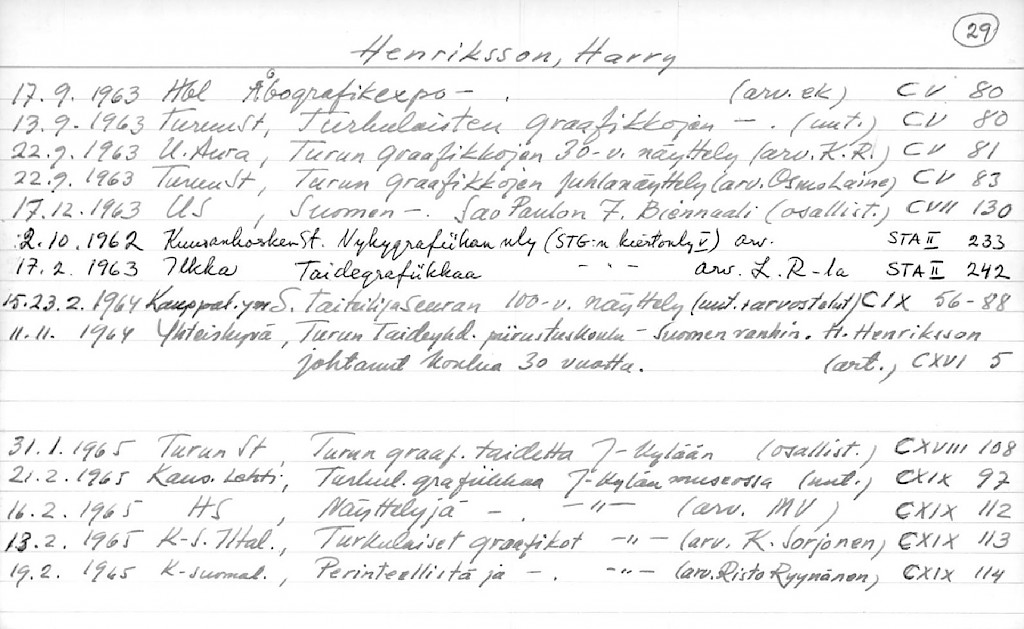 29
Henriksson, Harry
17.9.1963 Hbl Åbografikexpo - . (arv. EK) CV 80
13.9.1963 TurunSt, Turkulaisten graafikkojen - . (uut.) CV 80
22.9.1963 U. Aura, Turun graafikkojen 30-v. näyttely (arv. K.R.) CV 81
22.9.1963 TurunSt, Turun graafikkojen juhlanäyttely (arv. Osmo Laine) CV 83
17.12.1963 US, Suomen -. Sao Paulon 7. Biennaali (osallist.) CVII 130
2.10.1962 KuusankoskenSt. Nykygrafiikan nly (STG:n kiertonly V) arv. STA II 233
17.2.1963 Ilkka Taidegrafiikkaa - " - arv. L.R-la STA II 242
15.23.2.1964 Kauppal. ym S. Taiteilijaseuran 100-v. näyttely (uut. + arvostelut) CIX 56-88
11.11.1964 Yhteishyvä, Turun Taideyhd. piirustuskoulu - Suomen vanhin. H. Henriksson
johtanut koulua 30 vuotta. (art.) CXVI 5
31.1.1965 Turun St, Turun graaf. taidetta J-kylään (osallist.) CXVIII 108
21.2.1965 Kans. Lehti, Turkul. grafiikkaa J-kylän museossa (uut.) CXIX 97
16.2.1965 HS, Näyttelyjä - . -"- (arv. MV) CXIX 112
13.2.1965 K-S. Iltal., Turkulaiset graafikot -"- (arv. K. Sorjonen) CXIX 113
19.2.1965 K-suomal., Perinteellistä ja -. -"- (arv. Risto Ryynänen) CXIX 114